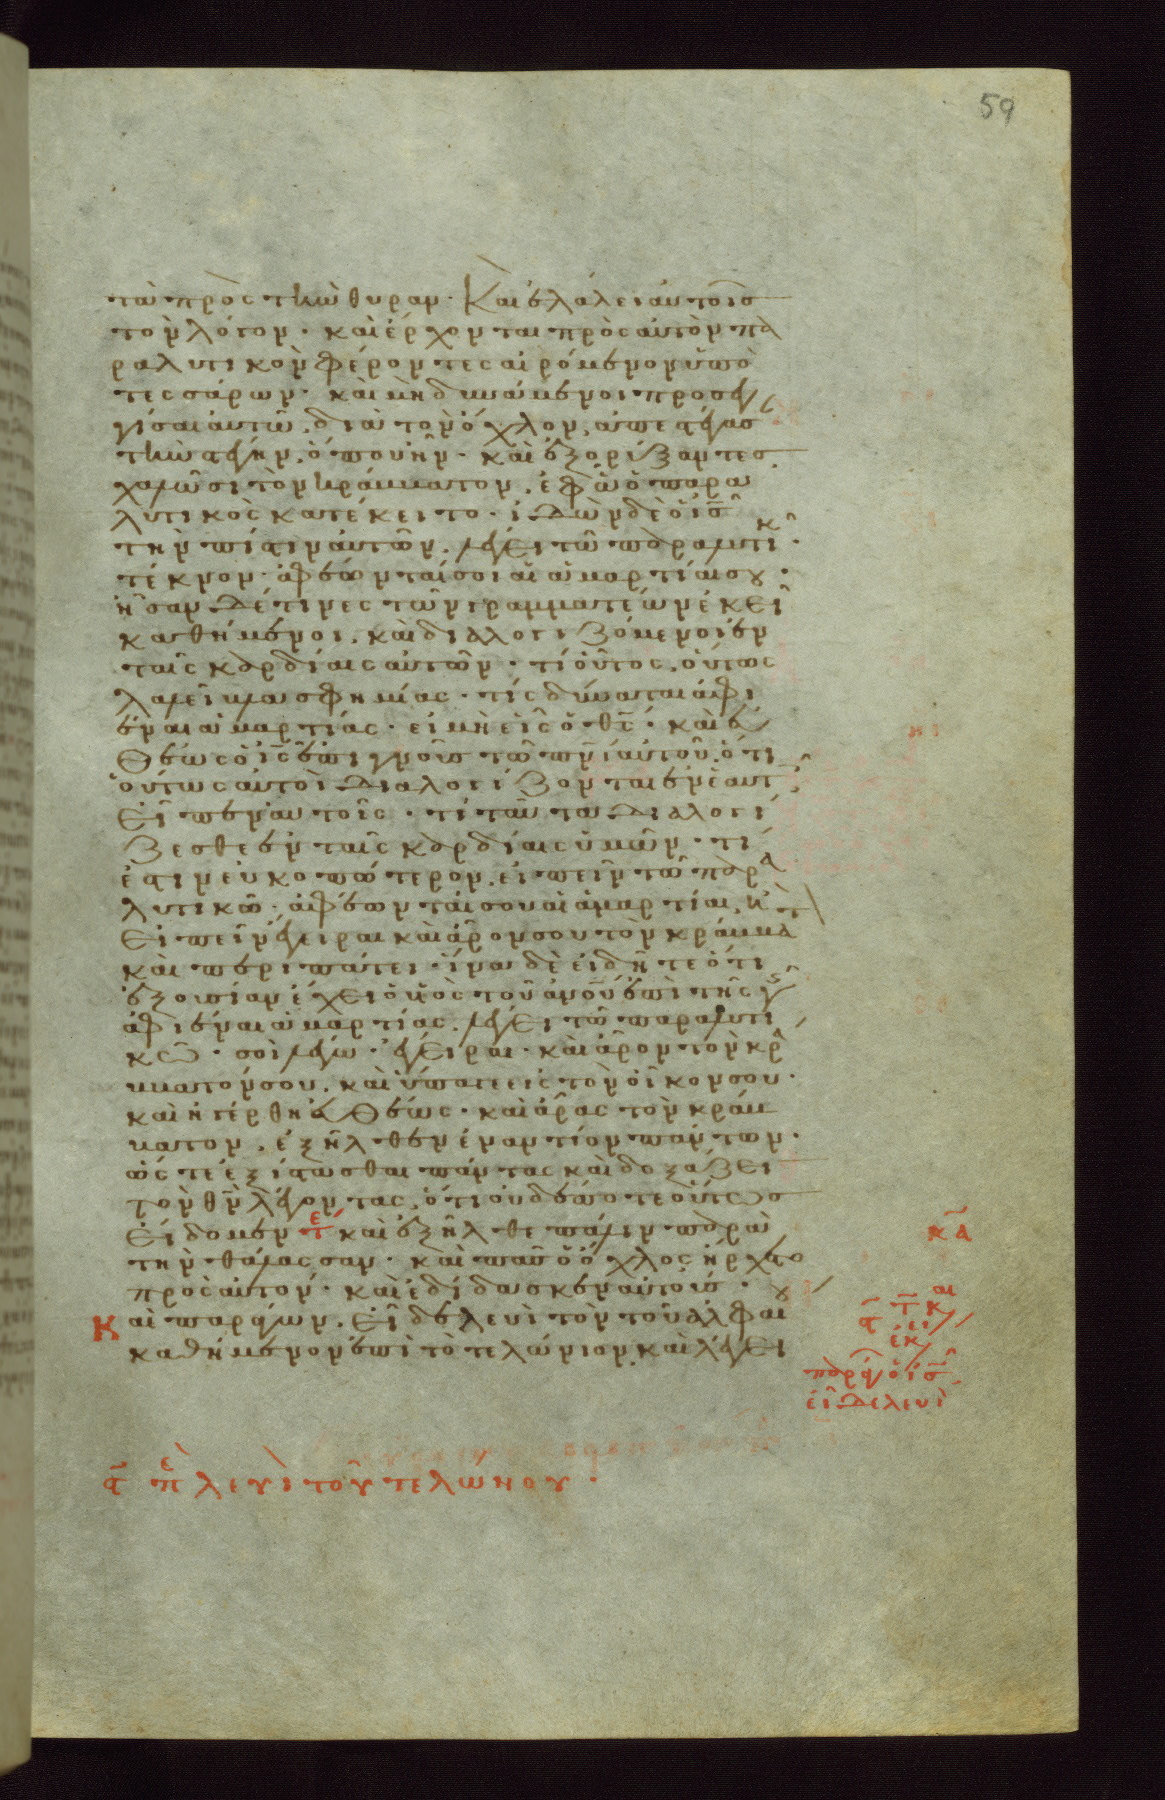 59
τὰ πρὸς τὴν θύραν · Καὶ ἐλάλει αὐτοῖς
τὸν λόγον · καὶ ἔρχονται πρὸς αὐτὸν πα
ραλυτικὸν φέροντες αἰρόμενον ὑπὸ
τεσσάρων · καὶ μὴ δυνάμενοι προσεγ
γίσαι αὐτῶ, διὰ τὸν ὄχλον, ἀπεστέγασ
τὴν στέγην, ὅπου ἦν · καὶ ἐξορύξαντες
χαλῶσι τὸν κράββατον, ἐφ' ὧ ὁ παρα
λυτικὸς κατέκειτο · ἰδὼν δὲ ὁ ἰς̅
τὴν πίστιν αὐτῶν, λέγει τῶ παραλυτικ ·
τέκνον · ἀφέωνταί σοι αἱ ἁμαρτίαι σου ·
ἦσαν δέ τινες τῶν γραμματέων ἐκεῖ
καθήμενοι, καὶ διαλογιζόμενοι ἐν
ταῖς καρδίαις αὐτῶν · τί οὗτος, οὕτως
λαλεῖ βλασφημίας · τίς δύναται ἀφι
έναι ἁμαρτίας · εἰ μὴ εἷς ὁ θς̅ · καὶ εὐ
θέως ὁ ἰς̅ ἐπιγνοὺς τῶ πνι̅ αὐτοῦ, ὅτι
οὕτως αὐτοὶ διαλογίζονται ἐν ἑαυτ
εἶπεν αὐτοῖς · τί ταῦτα διαλογί
ζεσθε ἐν ταῖς καρδίαις ὑμῶν · τί
ἐστιν εὐκοπώτερον, εἰπεῖν τῶ παρα
λυτικῶ · ἀφέωνταί σου αἱ ἁμαρτίαι, ἢ
εἰπεῖν ἔγειραι καὶ ἆρον σου τὸν κράββα τ
καὶ περιπάτει · ἵνα δὲ εἰδῆτε ὅτι
ἐξουσίαν ἔχει ὁ υἱὸς τοῦ ἀνου̅ ἐπὶ τῆς γ
ἀφιέναι ἁμαρτίας, λέγει τῶ παραλυτι
κῶ · σοὶ λέγω · ἔγειραι · καὶ ἆρον τὸν κρά
ββατόν σου, καὶ ὕπαγε εἰς τὸν οἶκον σου ·
καὶ ἠγέρθη εὐθέως · καὶ ἄρας τὸν κράβ
βατον, ἐξῆλθεν ἐναντίον πάντων ·
ὥστε ἐξίστασθαι πάντας καὶ δοξάζει
τὸν θν̅ λέγοντας, ὅτι οὐδέποτε οὕτως
εἴδομεν τε καὶ ἐξῆλθε πάλιν παρὰ
τὴν θάλασσαν · καὶ πᾶς ὁ ὄχλος ἤρχετο
πρὸς αὐτόν · καὶ ἐδίδασκεν αὐτούς ·
Καὶ παράγων, εἶδε λευὶ τὸν τοῦ ἀλφαίου
καθήμενον ἐπὶ τὸ τελώνιον, καὶ λέγει
κα̅
τ κ αι
ἐκ
παράγ ὁ ἰς̅
εἶδε λευὶ
π λευὶ τοῦ τελώνου ·